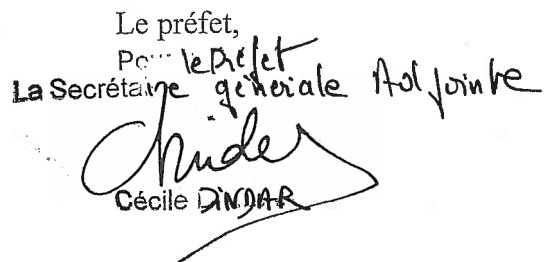 Le préfet,
Pour le Préfet
La Secrétaire générale Adjointe
Cécile DINDAR